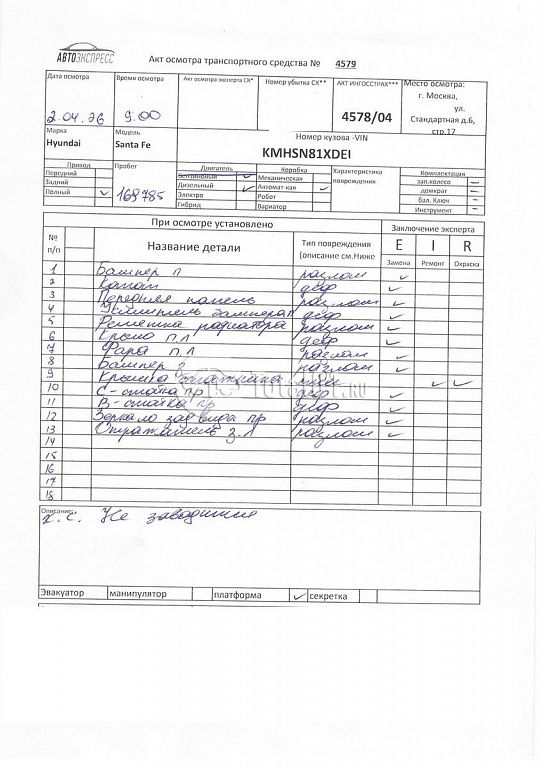 АВТОЭКСПРЕСС
Акт осмотра транспортного средства № 4579
Дата осмотра Время осмотра Акт осмотра эксперта СК* Номер убытка СК** АКТ ИНГОССТРАХ*** Место осмотра:
г. Москва,
ул.
2.04.26 9.00 4578/04 Стандартная д.6,
стр.17
Марка Модель Номер кузова -VIN
Hyundai Santa Fe KMHSN81XDEI
Привод Пробег Двигатель Коробка Характеристика повреждения Комплектация
Передний Бензиновый Механическая зап.колесо
Задний Дизельный Автомат-кая домкрат
Полный 169785 Электро Робот бал. Ключ
Гибрид Вариатор Инструмент
При осмотре установлено Заключение эксперта
№ п/п Название детали Тип повреждения (описание см.Ниже E I R
Замена Ремонт Окраска
1 Бампер п разлом
2 Капот деф
3 Передняя панель разлом
4 Усилитель бампера п деф
5 Решетка радиатора разлом
6 Крыло п.л деф
7 Фара п.л разлом
8 Бампер з разлом
9 Крышка багажника
10 С-стойка пр деф
11 В-стойка пр деф
12 Зеркало зад вида пр разлом
13 Отражатель з.л разлом
14
15
16
17
18
Описание:
Не заводится
Эвакуатор манипулятор платформа секретка